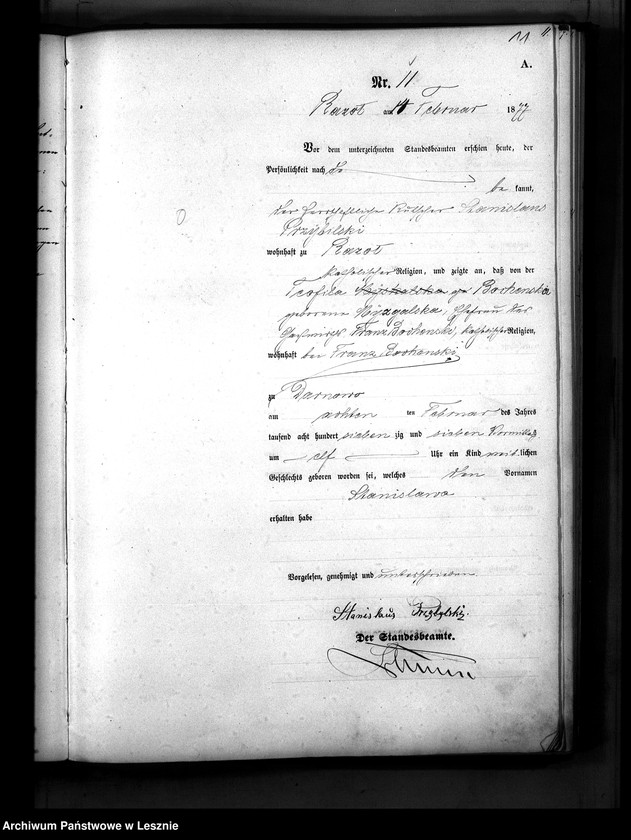 11
A.
Nr. 11
Razot am 14 Februar 1877
Vor dem unterzeichneten Standesbeamten erschien heute, der
Persönlichkeit nach
be kannt,
der herrschaftliche Kutscher Stanislaus
Przybilski
wohnhaft zu Razot
katholischer Religion, und zeigte an, daß von der
Teofila Bochenska
geborene Ehefrau des
Franz Bochenski, katholischer Religion,
wohnhaft bei Franz Bochenski
zu Darnowo
am achten ten Februar des Jahres
tausend acht hundert sieben zig und sieben Vormittags
um elf Uhr ein Kind weib lichen
Geschlechts geboren worden sei, welches den Vornamen
Stanislawa
erhalten habe
Vorgelesen, genehmigt und unterschrieben
Stanislaus Przybylski.
Der Standesbeamte.
Archiwum Państwowe w Lesznie